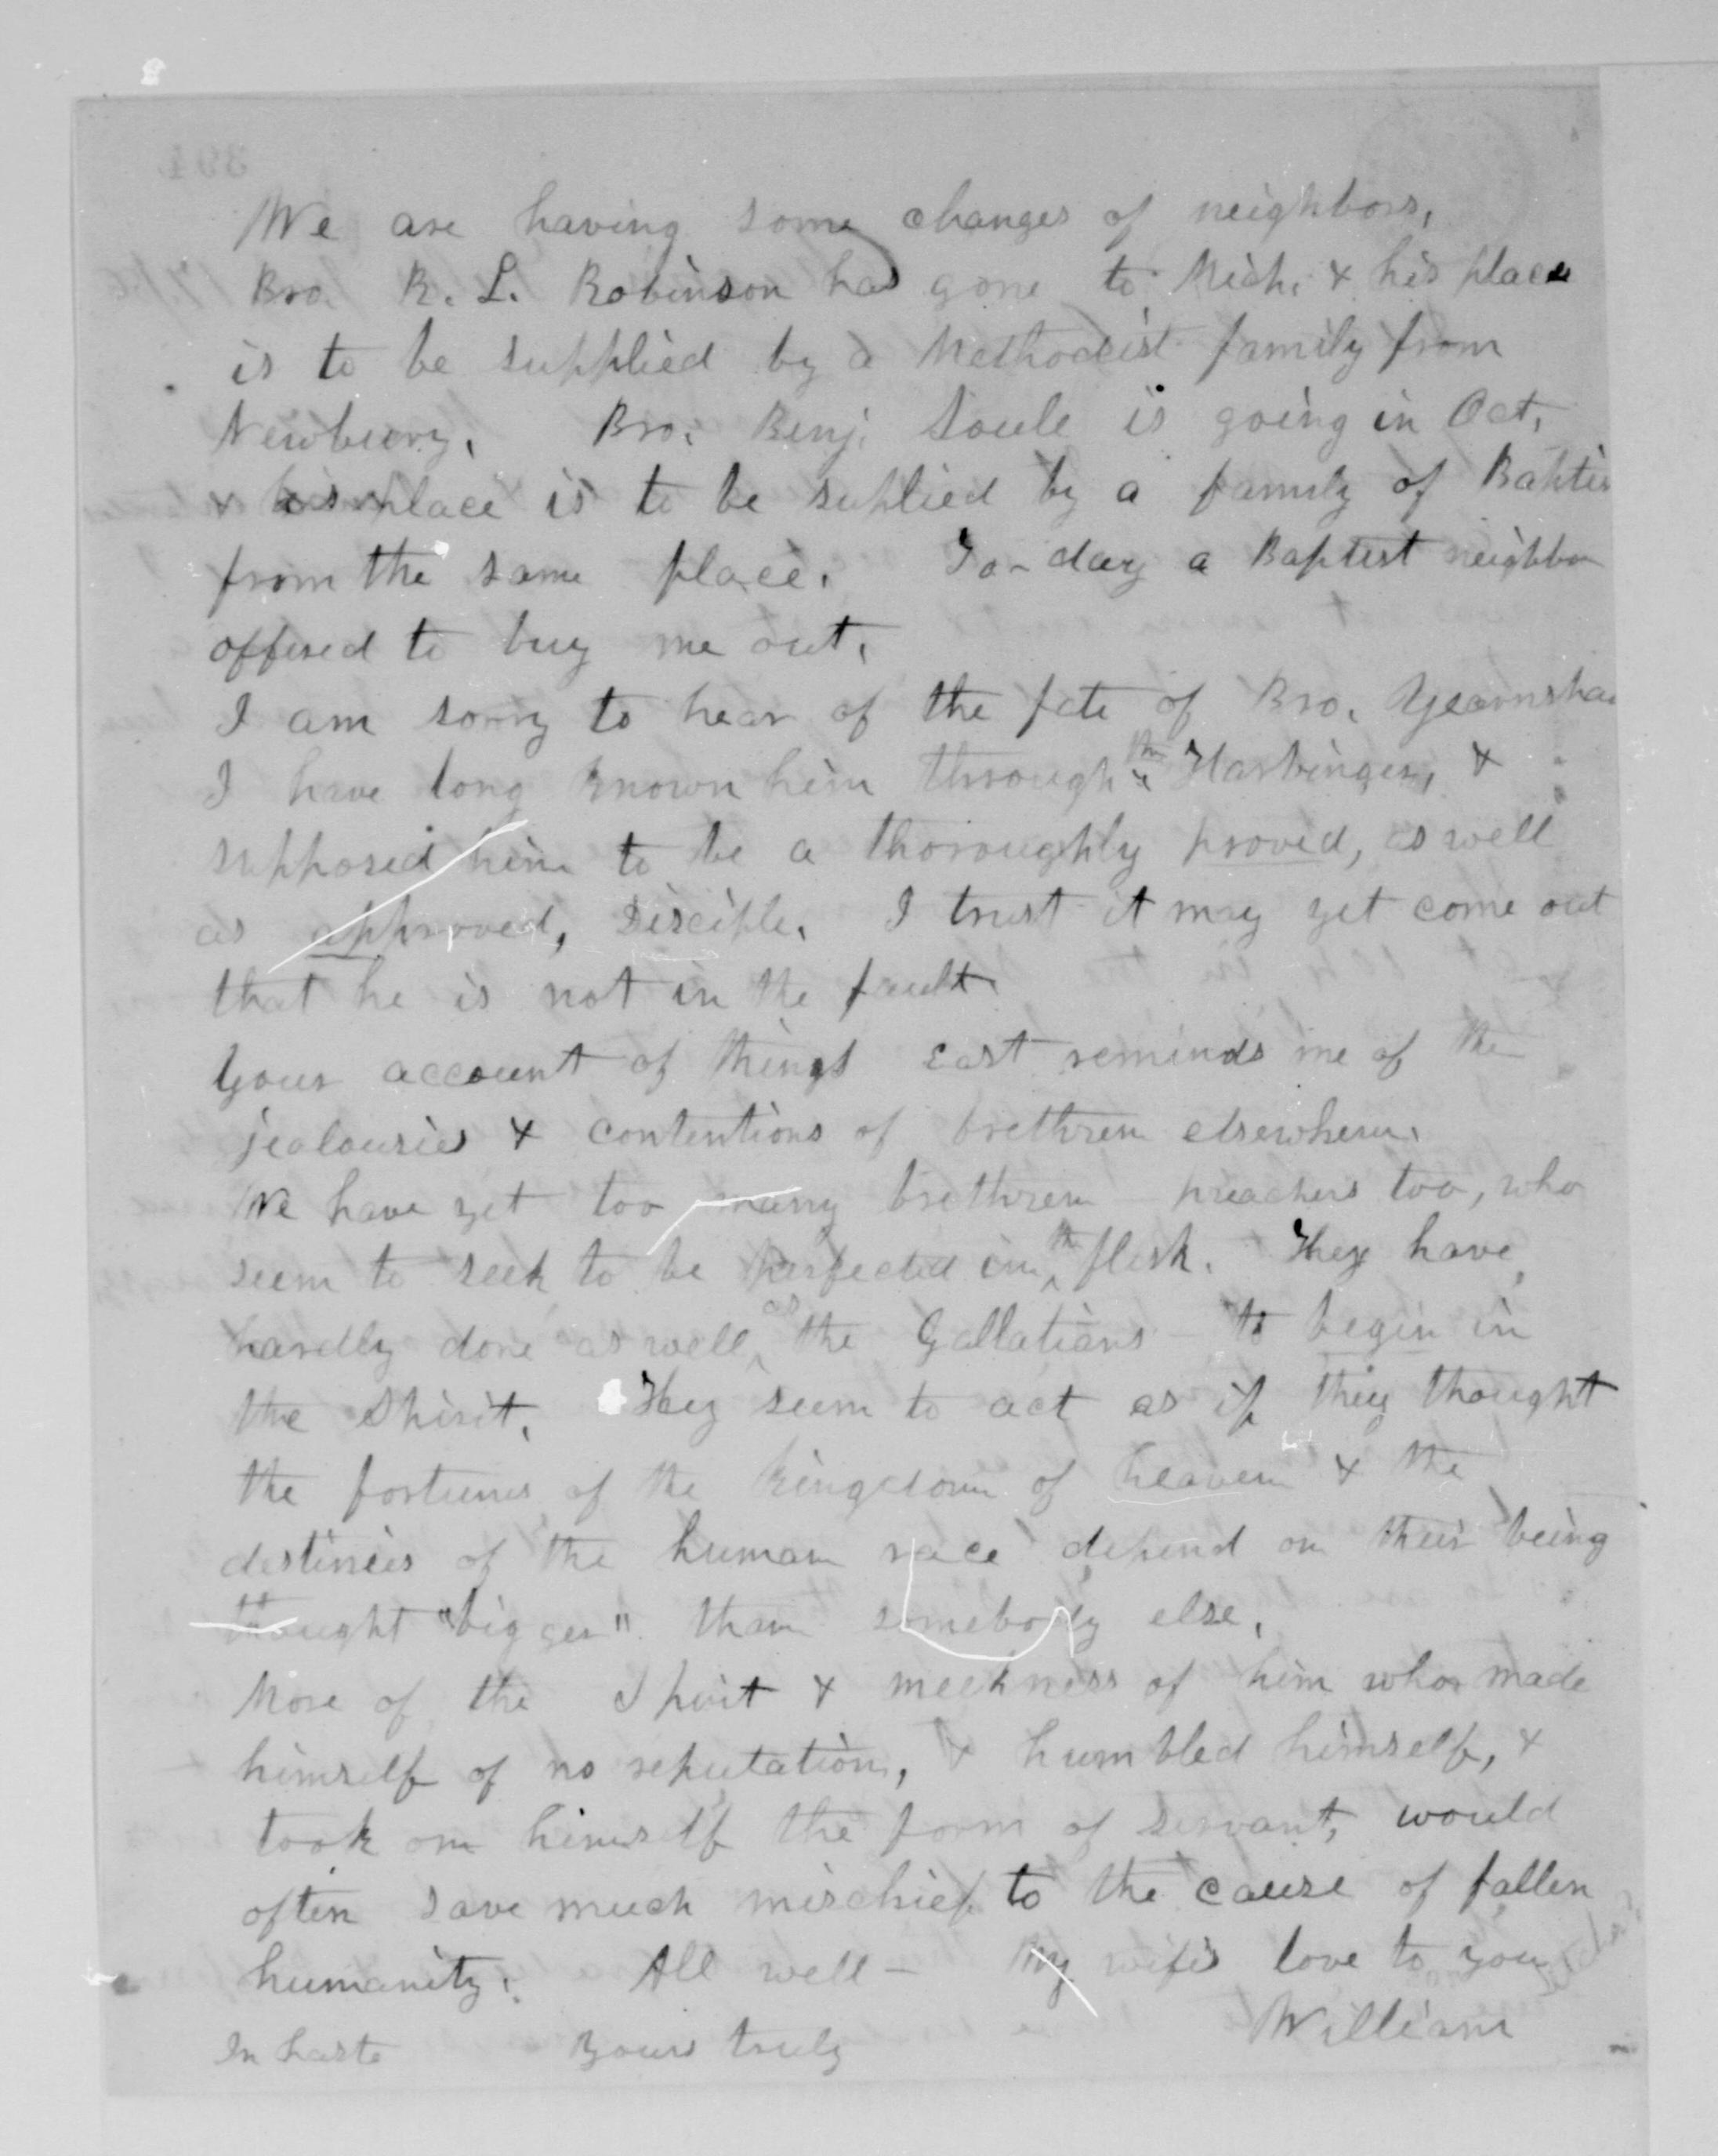 We are having some changes of neighbors,
Bro. R. L. Robinson has gone to Mich. & his place
is to be supplied by a Methodist family from
Newbury. Bro. Benj. Soule is going in Oct,
& his place is to be suplied by a family of Baptis
from the same place. To-day a Baptist neighbor
offered to buy me out.
I am sorry to hear of the fate of Bro. Yearnsha
I have long known him through the Harbinger, &
supposed him to be a thoroughly proved, as well
as approved, Disciple. I trust it may yet come out
that he is not in the fault
Your account of things East reminds me of the
jealousies & contentions of brethren elsewhere.
We have yet too many brethren preachers too, who
seem to seek to be perfected in the flesh. They have
hardly done as well as the Gallatians - to begin in
the Spirit. They seem to act as if they thought
the fortunes of the kingdom of heaven & the
destinies of the human race depend on their being
thought "bigger" than somebody else.
More of the Spirit & meekness of him who made
himself of no reputation, & humbled himself, &
took on himself the form of servant, would
often save much mischief to the cause of fallen
humanity. All well - My wife's love to you
In haste Yours truly William